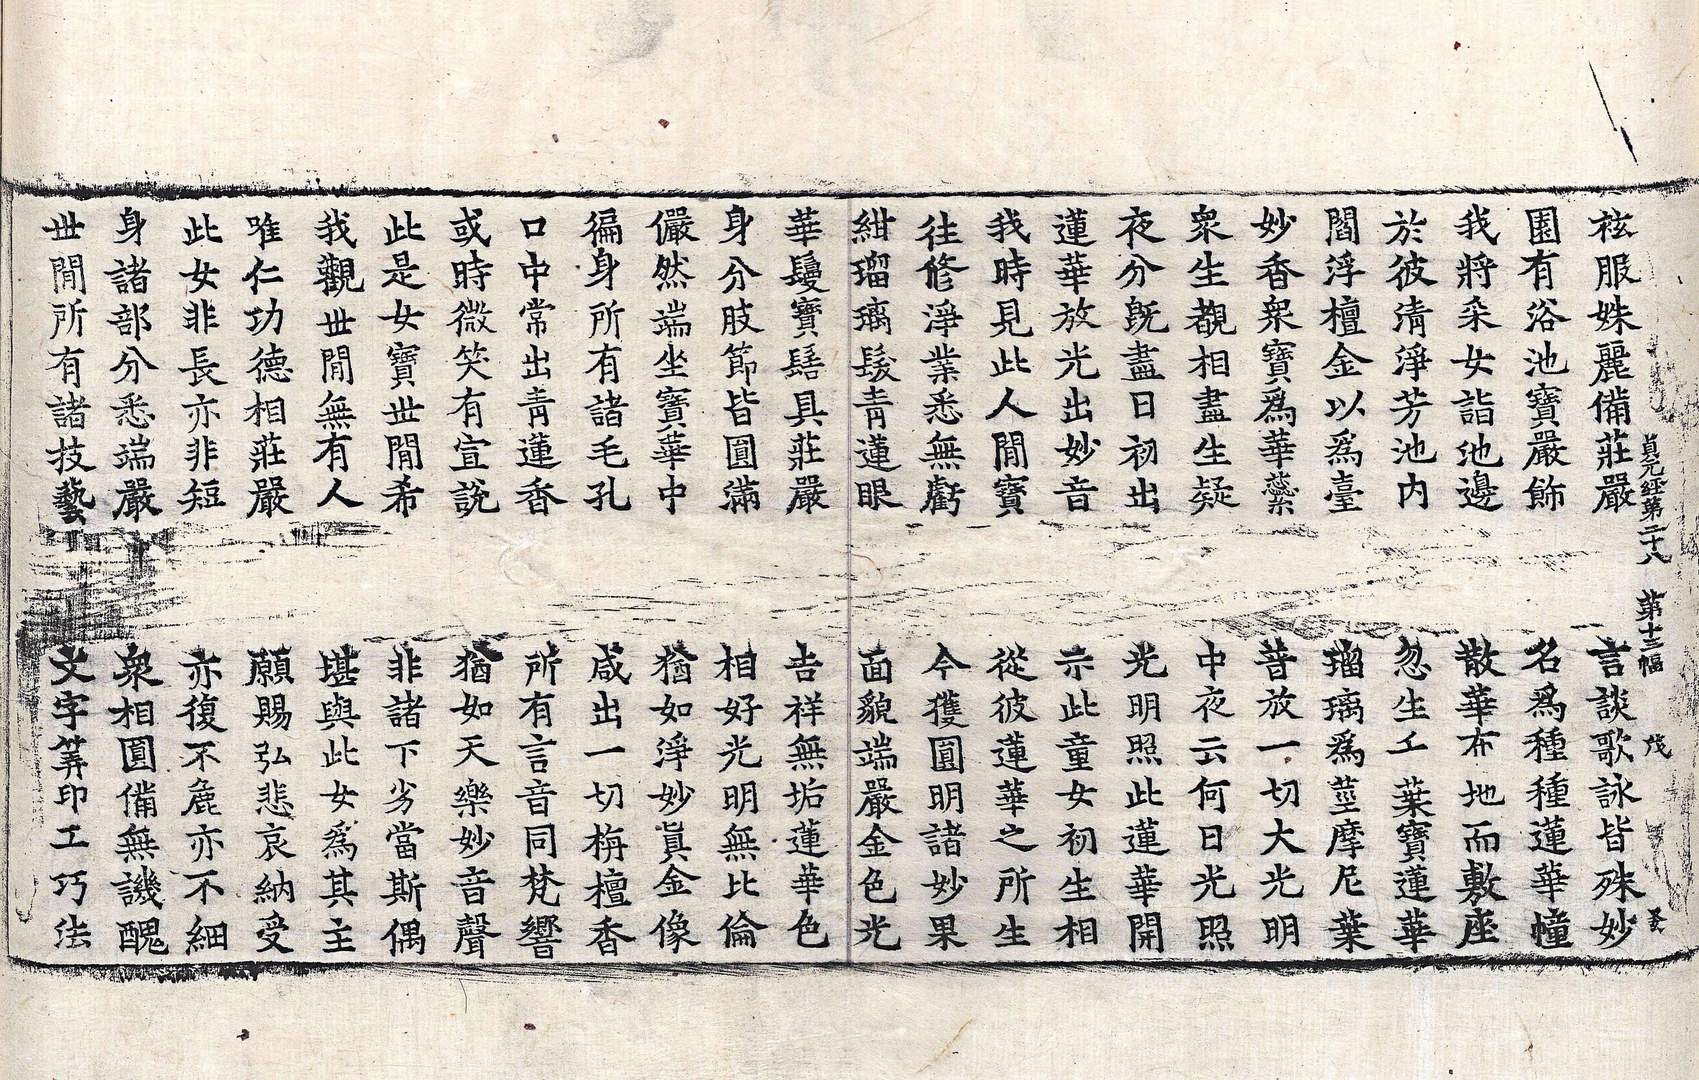 貞元經第二十八 第十三幅 茂
袨服姝麗備莊嚴 言談歌詠皆殊妙
園有浴池寶嚴飾 名爲種種蓮華幢
我將采女詣池邊 散華布地而敷座
於彼清淨芳池内 忽生千葉寶蓮華
閻浮檀金以爲臺 瑠璃爲莖摩尼葉
妙香衆寶爲華蘂 昔放一切大光明
衆生覩相盡生疑 中夜云何日光照
夜分旣盡日初出 光明照此蓮華開
蓮華放光出妙音 示此童女初生相
我時見此人閒寶 從彼蓮華之所生
往修淨業悉無虧 今獲圓明諸妙果
紺瑠璃髮青蓮眼 面貌端嚴金色光
華鬘寶髻具莊嚴 吉祥無垢蓮華色
身分肢節皆圓滿 相好光明無比倫
儼然端坐寶華中 猶如淨妙眞金像
徧身所有諸毛孔 咸出一切栴檀香
口中常出青蓮香 所有言音同梵響
或時微笑有宣說 猶如天樂妙音聲
此是女寶世閒希 非諸下劣當斯偶
我觀世閒無有人 堪與此女爲其主
唯仁功德相莊嚴 願賜弘悲哀納受
此女非長亦非短 亦復不麁亦不細
身諸部分悉端嚴 衆相圓備無譏醜
世閒所有諸技藝 文字筭印工巧法